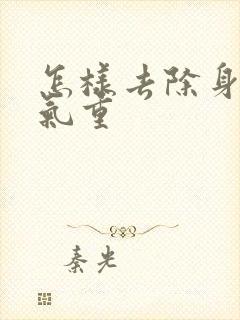 怎樣去除身
氣重
秦光